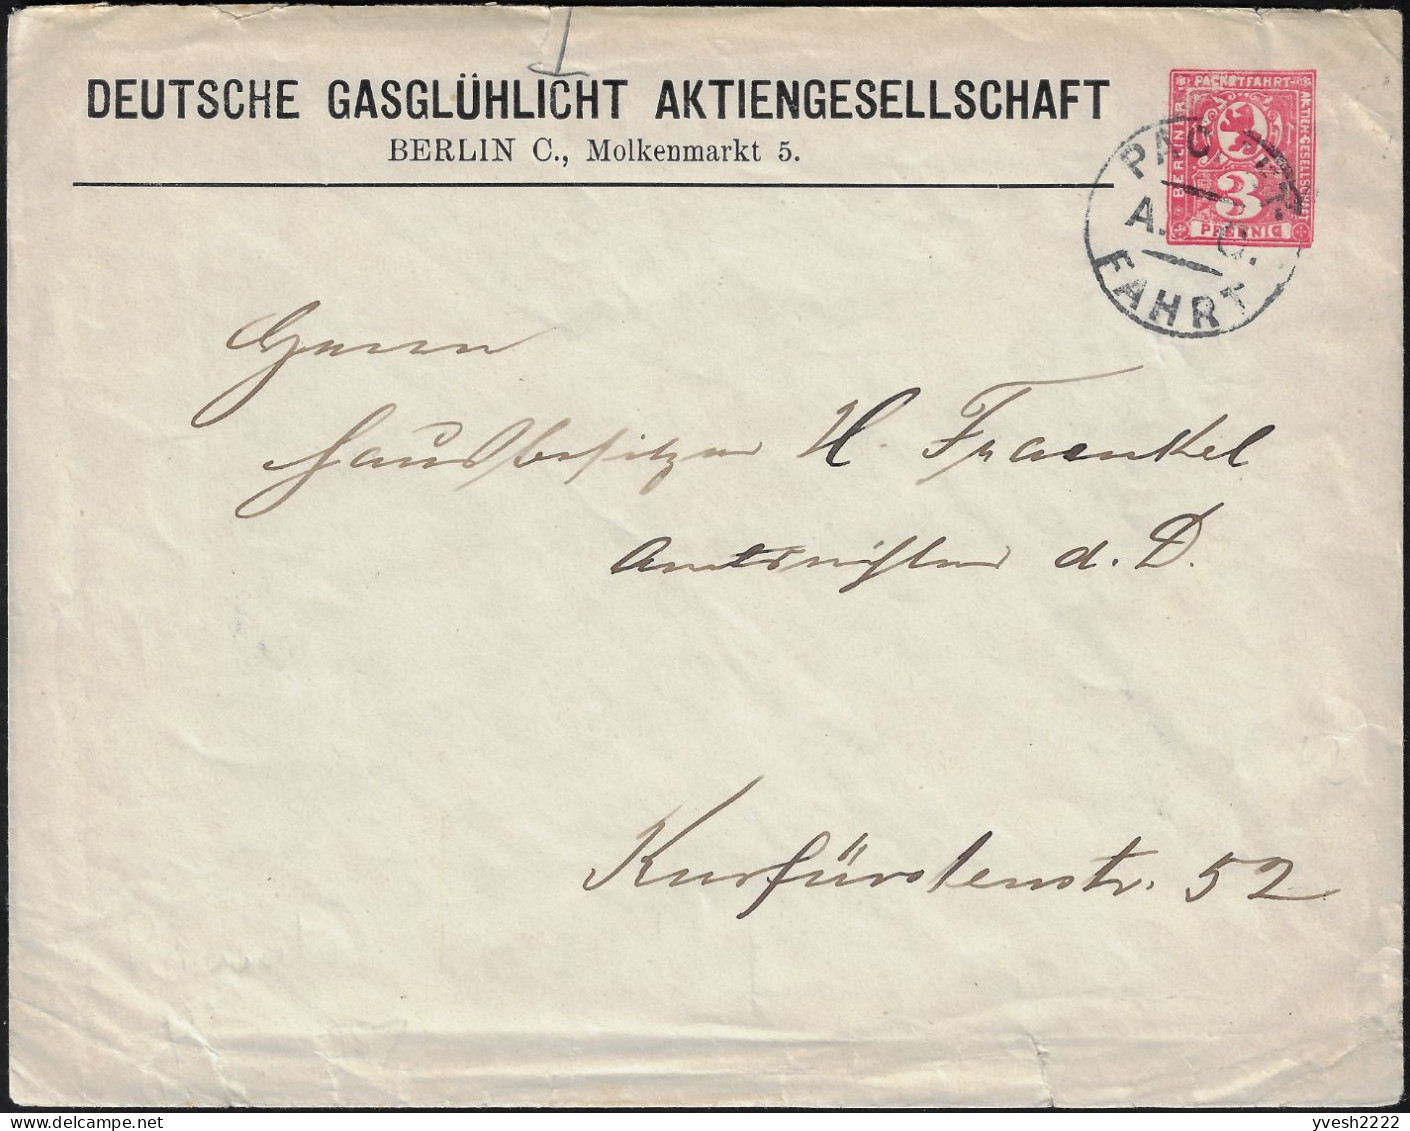 DEUTSCHE GASGLÜHLICHT AKTIENGESELLSCHAFT
BERLIN C., Molkenmarkt 5.
BERLINER PACKETFAHRT-AKTIEN-GESELLSCHAFT
3
PFENNIG
PACKET.
A. G.
FAHRT
Herrn
Hausbesitzer H. Fraenkel
Amtsrichter a. D.
Kurfürstenstr. 52
yvesh2222